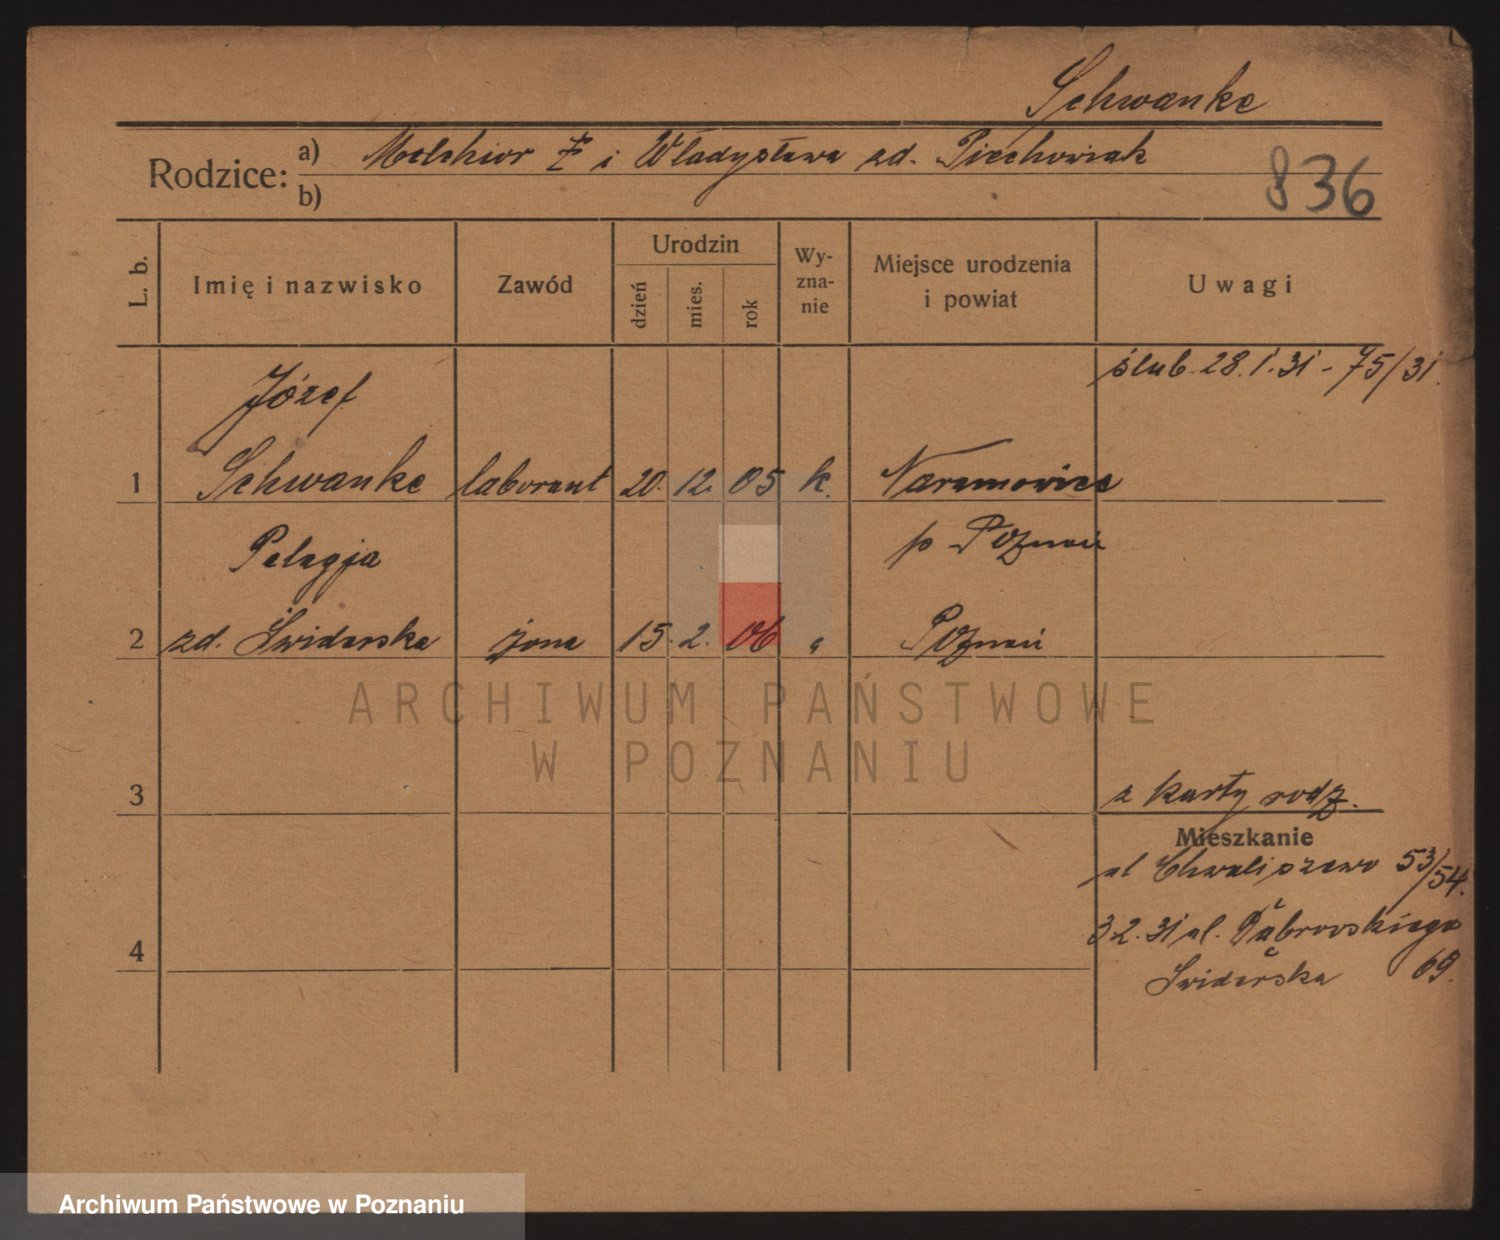 Schwanke
Rodzice: a) Melchior ‡ i Władysława zd. Piechowiak
b)
836
L. b. Imię i nazwisko Zawód Urodzin dzień mies. rok Wyznanie Miejsce urodzenia i powiat Uwagi
ślub. 28.1.31 - 75/31.
Józef
1 Schwanke laborant 20. 12. 05 k. Naramowice
Pelagja p Poznań
2 zd. Świderska żona 15. 2. 06 " Poznań
ARCHIWUM PAŃSTWOWE
W POZNANIU
3 z karty rodz.
Mieszkanie
ul Chwaliszewo 53/54.
3.2.31 ul. Dąbrowskiego
4
Świderska 69.
Archiwum Państwowe w Poznaniu